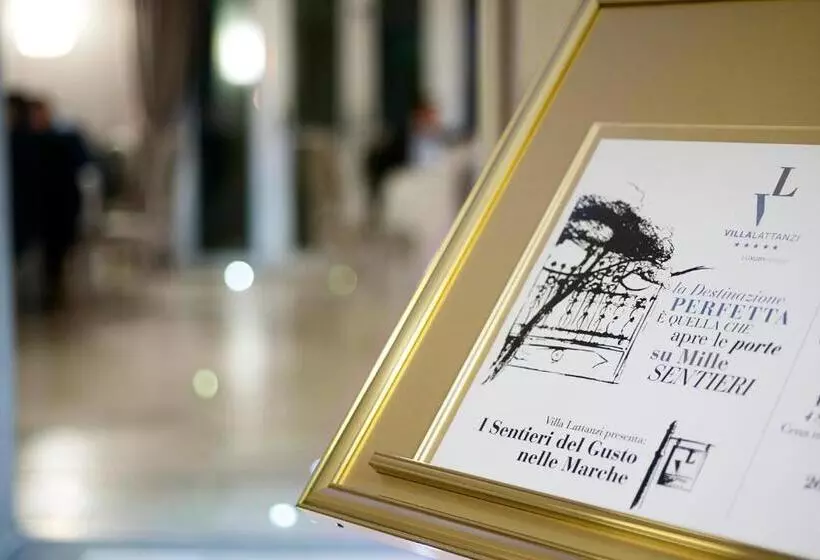 VL
VILLALATTANZI
LUXURY
la Destinazione
PERFETTA
È QUELLA CHE
apre le porte
su Mille
SENTIERI
Villa Lattanzi presenta:
I Sentieri del Gusto
nelle Marche
VL
Cena